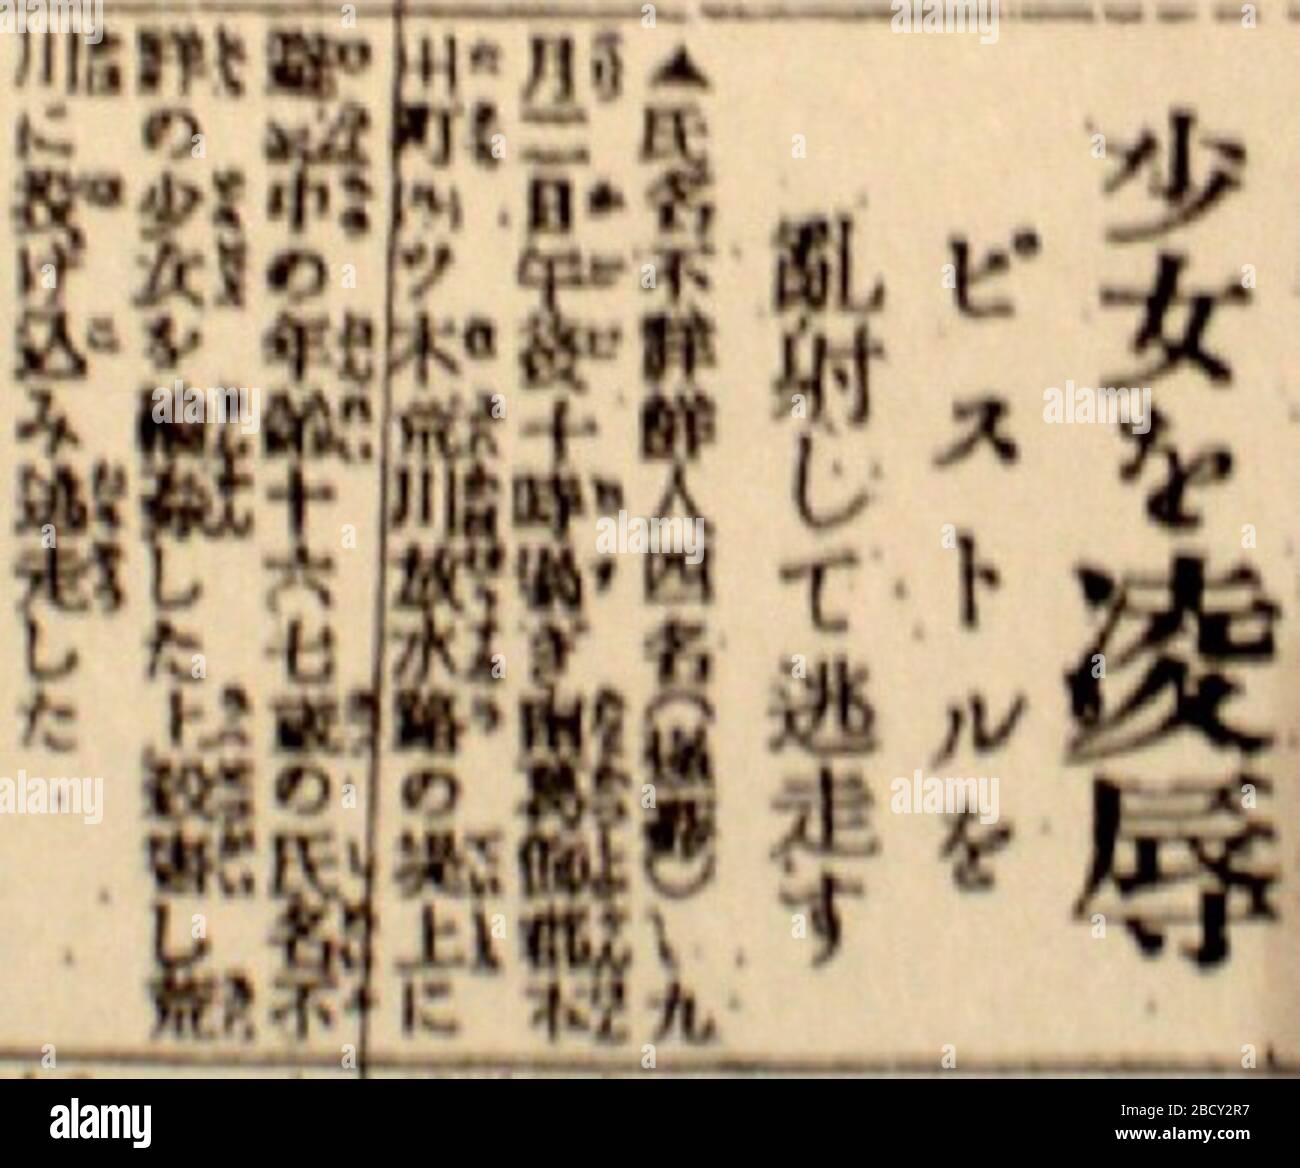 少女を凌辱
ピストルを
乱射して逃走す
▲氏名不詳鮮人四名(逃走)、九
月二日午後十時過ぎ南葛飾郡本
田町四ツ木荒川放水路の堤上に
の年齢十六七歳の氏名不
詳の少女を輪姦した上殺害し荒
川に投げ込み逃走した
alamy
Image ID: 2BCY2R7
www.alamy.com